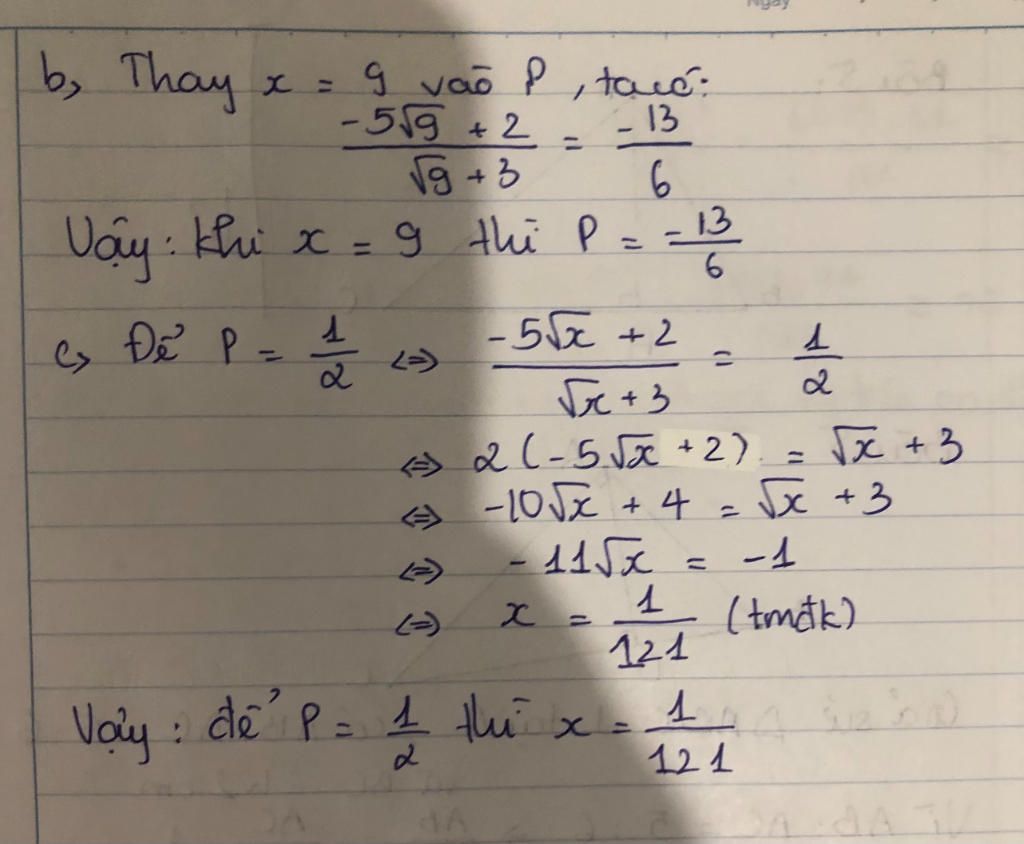 b, Thay x = 9 vào P, ta có:
(-5√9 + 2)/(√9 + 3) = -13/6
Vậy: khi x = 9 thì P = -13/6
c, Để P = 1/2 <=> (-5√x + 2)/(√x + 3) = 1/2
<=> 2(-5√x + 2) = √x + 3
<=> -10√x + 4 = √x + 3
<=> -11√x = -1
<=> x = 1/121 (tmđk)
Vậy: để P = 1/2 thì x = 1/121